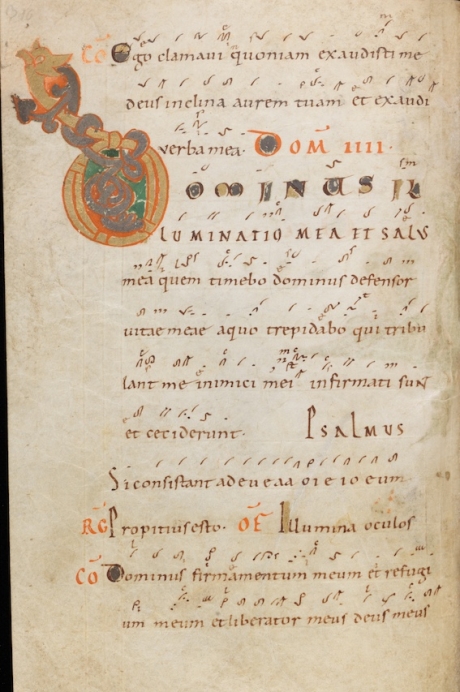 CŌ Ego clamavi quoniam exaudisti me
deus inclina aurem tuam et exaudi
verba mea. DOM̄ IIII.
DOMINUS IL
LUMINATIO MEA ET SALVS
mea quem timebo dominus defensor
vitae meae aquo trepidabo qui tribu
lant me inimici mei infirmati sunt
et ceciderunt. PSALMUS
Si consistant ad eu e a a o i e i o eum
RG Propitius esto. OF Illumina oculos
CŌ Dominus firmamentum meum et refugi
um meum et liberator meus deus meus